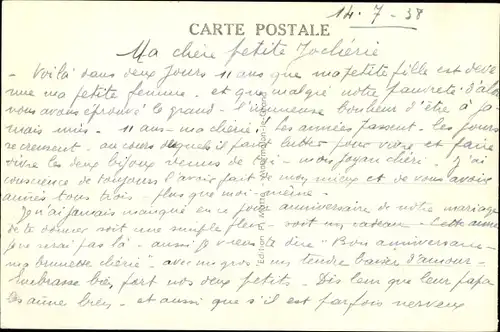 14-7-38
CARTE POSTALE
Ma chère petite
- Voilà dans deux jours 11 ans que ma petite fille est deve
nue ma petite femme - et que malgré notre pauvreté d'alors
nous avons éprouvé le grand - l'immense bonheur d'être à ja-
mais unis. 11 ans - ma chérie! Les années passent - les jours
au cours desquels il faut lutter pour vivre et faire
vivre les deux bijoux venus de toi - mon joyau chéri. J'ai
conscience de toujours l'avoir fait de mon mieux et de vous avoir
aimés tous trois - plus que moi-même.
Je n'ai jamais manqué en ce jour anniversaire de notre mariage
de te donner soit une simple fleur - soit un cadeau - Cette année
je ne serai pas là - aussi je viens te dire "Bon anniversaire -
ma brunette chérie" avec un gros - un tendre baiser d'amour -
Embrasse bien fort nos deux petits - Dis leur que leur papa
les aime bien - et aussi que s'il est parfois nerveux